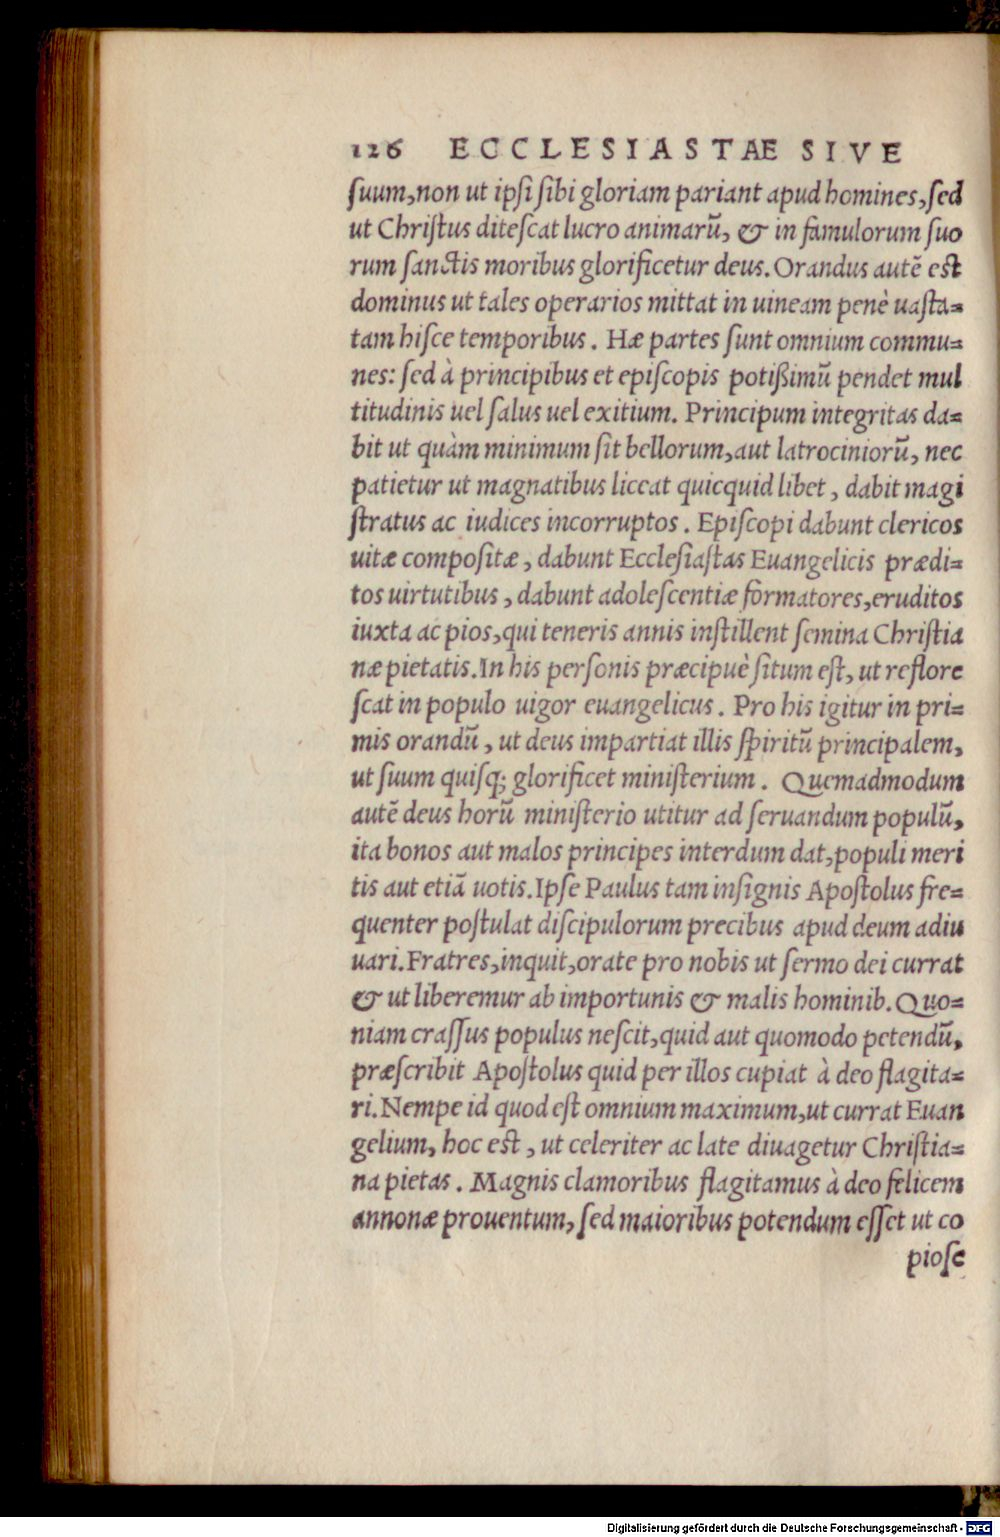 126 ECCLESIASTAE SIVE
ſuum,non ut ipſi ſibi gloriam pariant apud homines,ſed
ut Chriſtus diteſcat lucro animarũ, & in famulorum ſuo
rum ſanctis moribus glorificetur deus.Orandus autẽ eſt
dominus ut tales operarios mittat in uineam penè uaſta=
tam hiſce temporibus. Hæ partes ſunt omnium commu=
nes: ſed à principibus et epiſcopis potißimũ pendet mul
titudinis uel ſalus uel exitium. Principum integritas da=
bit ut quàm minimum ſit bellorum,aut latrociniorũ, nec
patietur ut magnatibus liceat quicquid libet, dabit magi
ſtratus ac iudices incorruptos. Epiſcopi dabunt clericos
uitæ compoſitæ, dabunt Eccleſiaſtas Euangelicis prædi=
tos uirtutibus, dabunt adoleſcentiæ formatores,eruditos
iuxta ac pios,qui teneris annis inſtillent ſemina Chriſtia
næ pietatis.In his perſonis præcipuè ſitum eſt, ut reflore
ſcat in populo uigor euangelicus. Pro his igitur in pri=
mis orandũ, ut deus impartiat illis ſpiritũ principalem,
ut ſuum quiſq; glorificet miniſterium. Quemadmodum
autẽ deus horũ miniſterio utitur ad ſeruandum populũ,
ita bonos aut malos principes interdum dat,populi meri
tis aut etiã uotis.Ipſe Paulus tam inſignis Apoſtolus fre=
quenter poſtulat diſcipulorum precibus apud deum adiu
uari.Fratres,inquit,orate pro nobis ut ſermo dei currat
& ut liberemur ab importunis & malis hominib.Quo=
niam craſſus populus neſcit,quid aut quomodo petendũ,
præſcribit Apoſtolus quid per illos cupiat à deo flagita=
ri.Nempe id quod eſt omnium maximum,ut currat Euan
gelium, hoc eſt, ut celeriter ac late diuagetur Chriſtia=
na pietas. Magnis clamoribus flagitamus à deo felicem
annonæ prouentum, ſed maioribus potendum eſſet ut co
pioſe
Digitalisierung gefördert durch die Deutsche Forschungsgemeinschaft - DFG